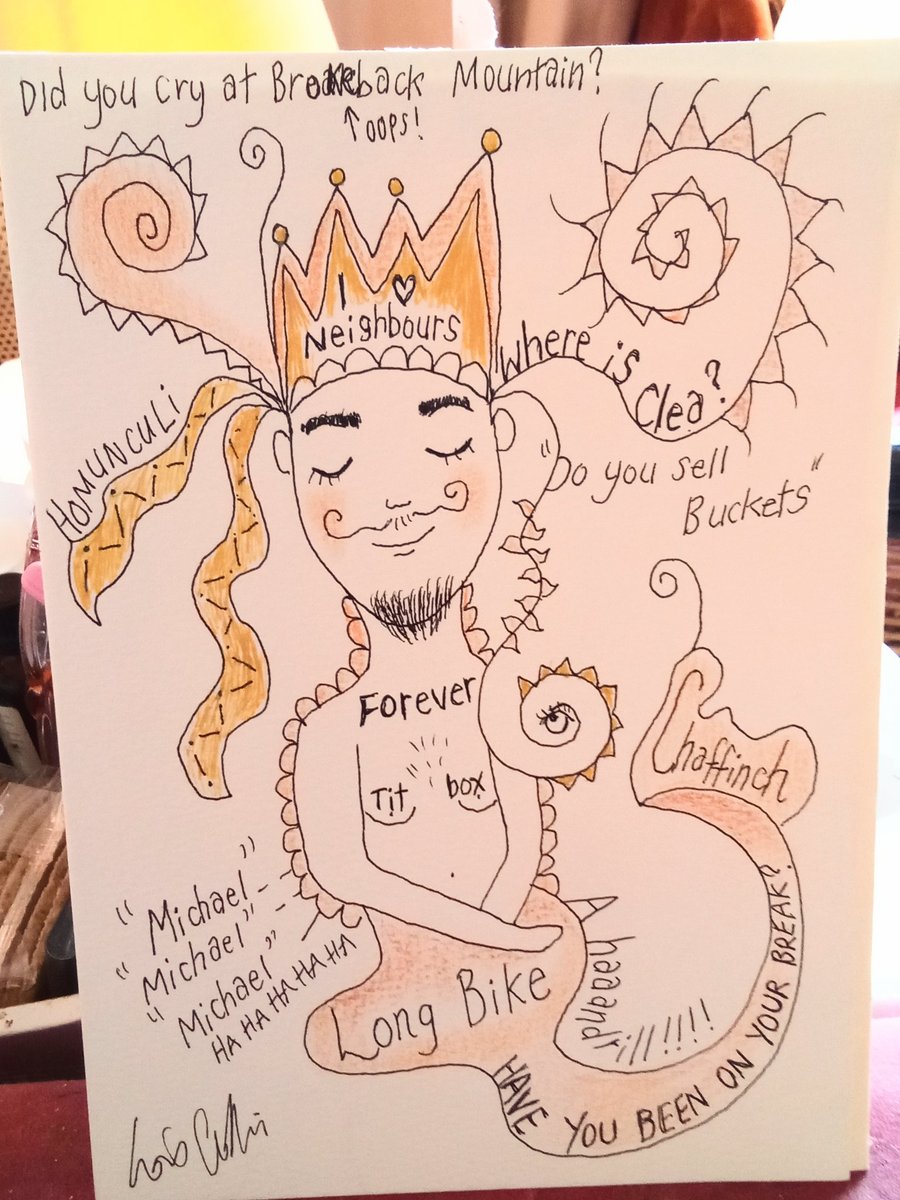 Did you cry at Brokeback Mountain?
↑ oops!
I ♡
Neighbours
Where is
Clea?
HOMUNCULI
"Do you sell
Buckets"
Forever
Tit box
Chaffinch
"Michael"
"Michael"
"Michael"
HA HA HA HA HA HA
Long Bike
drill!!!!
HAVE YOU BEEN ON YOUR BREAK?